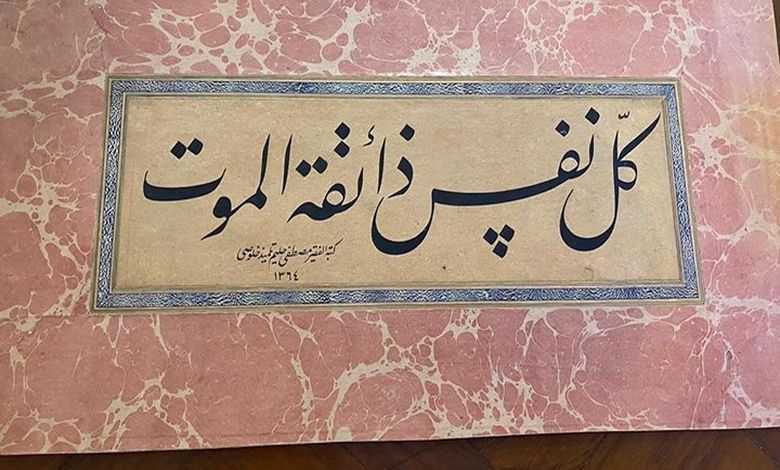 كلّ نفس ذائقة الموت
كتبه الفقير مصطفى حليم تلميذ خلوصي
١٣٦٤